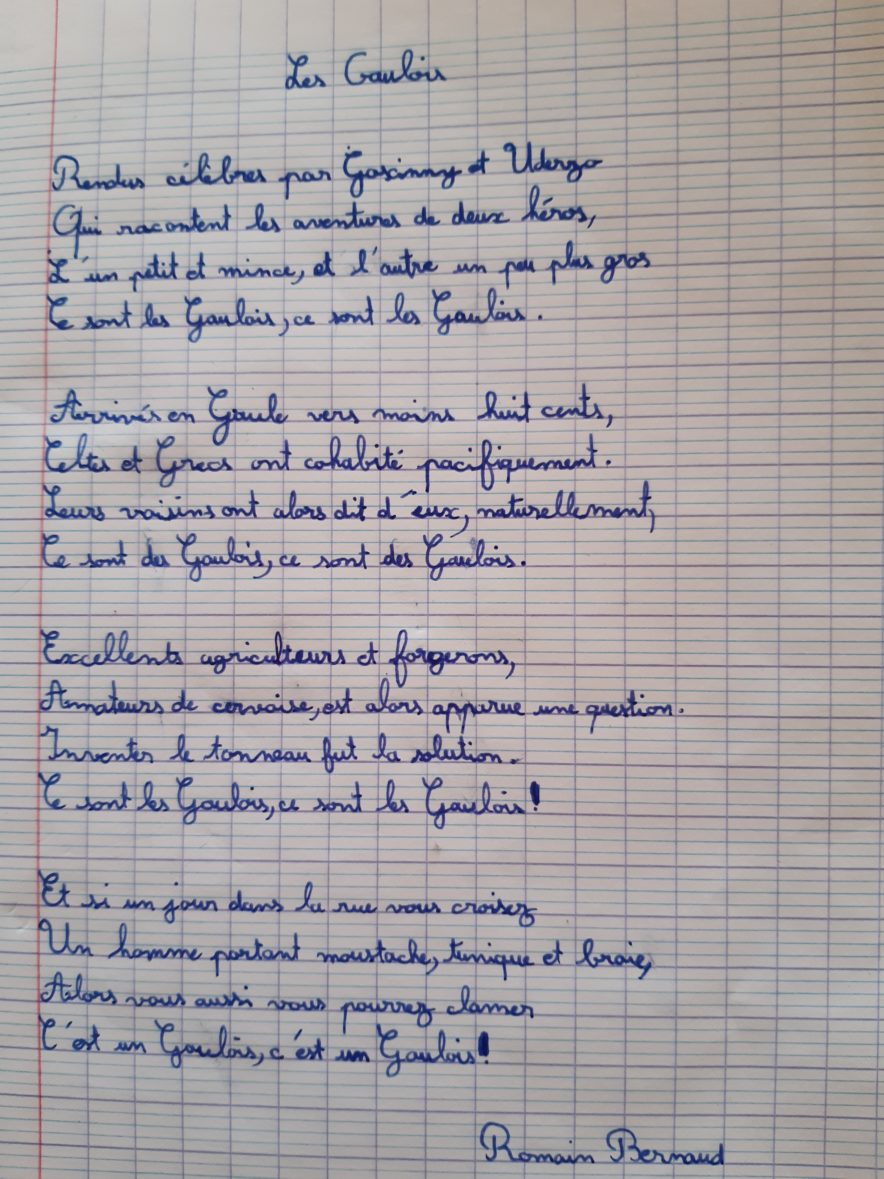 Les Gaulois
Rendus célèbres par Goscinny et Uderzo
Qui racontent les aventures de deux héros,
L'un petit et mince, et l'autre un peu plus gros
Ce sont les Gaulois, ce sont les Gaulois.
Arrivés en Gaule vers moins huit cents,
Celtes et Grecs ont cohabité pacifiquement.
Leurs voisins ont alors dit d'eux, naturellement,
Ce sont des Gaulois, ce sont des Gaulois.
Excellents agriculteurs et forgerons,
Amateurs de cervoise, est alors apparue une question.
Inventer le tonneau fut la solution.
Ce sont les Gaulois, ce sont les Gaulois!
Et si un jour dans la rue vous croisez
Un homme portant moustache, tunique et braie,
Alors vous aussi vous pourrez clamer
C'est un Gaulois, c'est un Gaulois!
Romain Bernaud